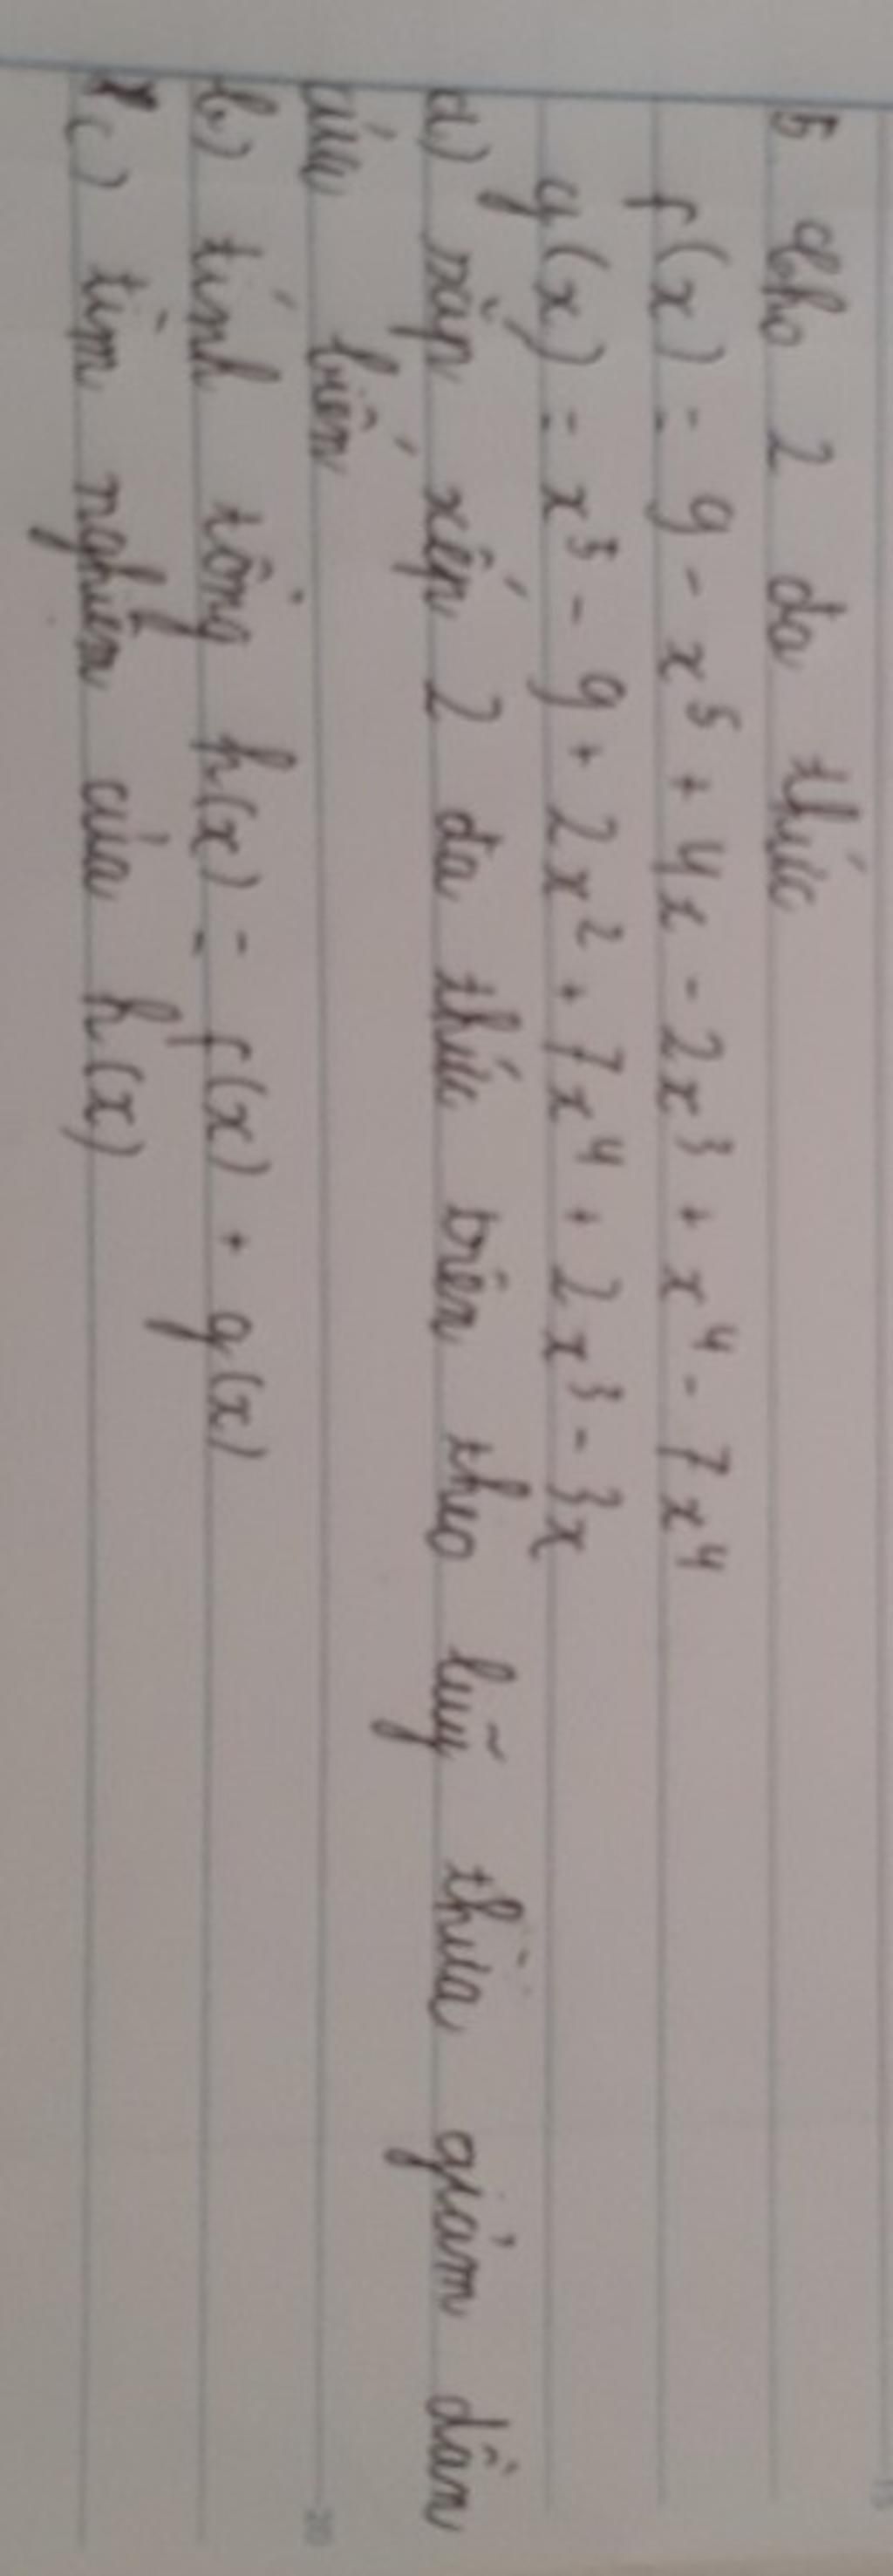 5 Cho 2 đa thức
f(x) = 9 - x⁵ + 4x - 2x³ + x⁴ - 7x⁴
g(x) = x⁵ - 9 + 2x² + 7x⁴ + 2x³ - 3x
a) sắp xếp 2 đa thức trên theo luỹ thừa giảm dần
của biến
b) tính tổng h(x) = f(x) + g(x)
c) tìm nghiệm của h(x)
15
20